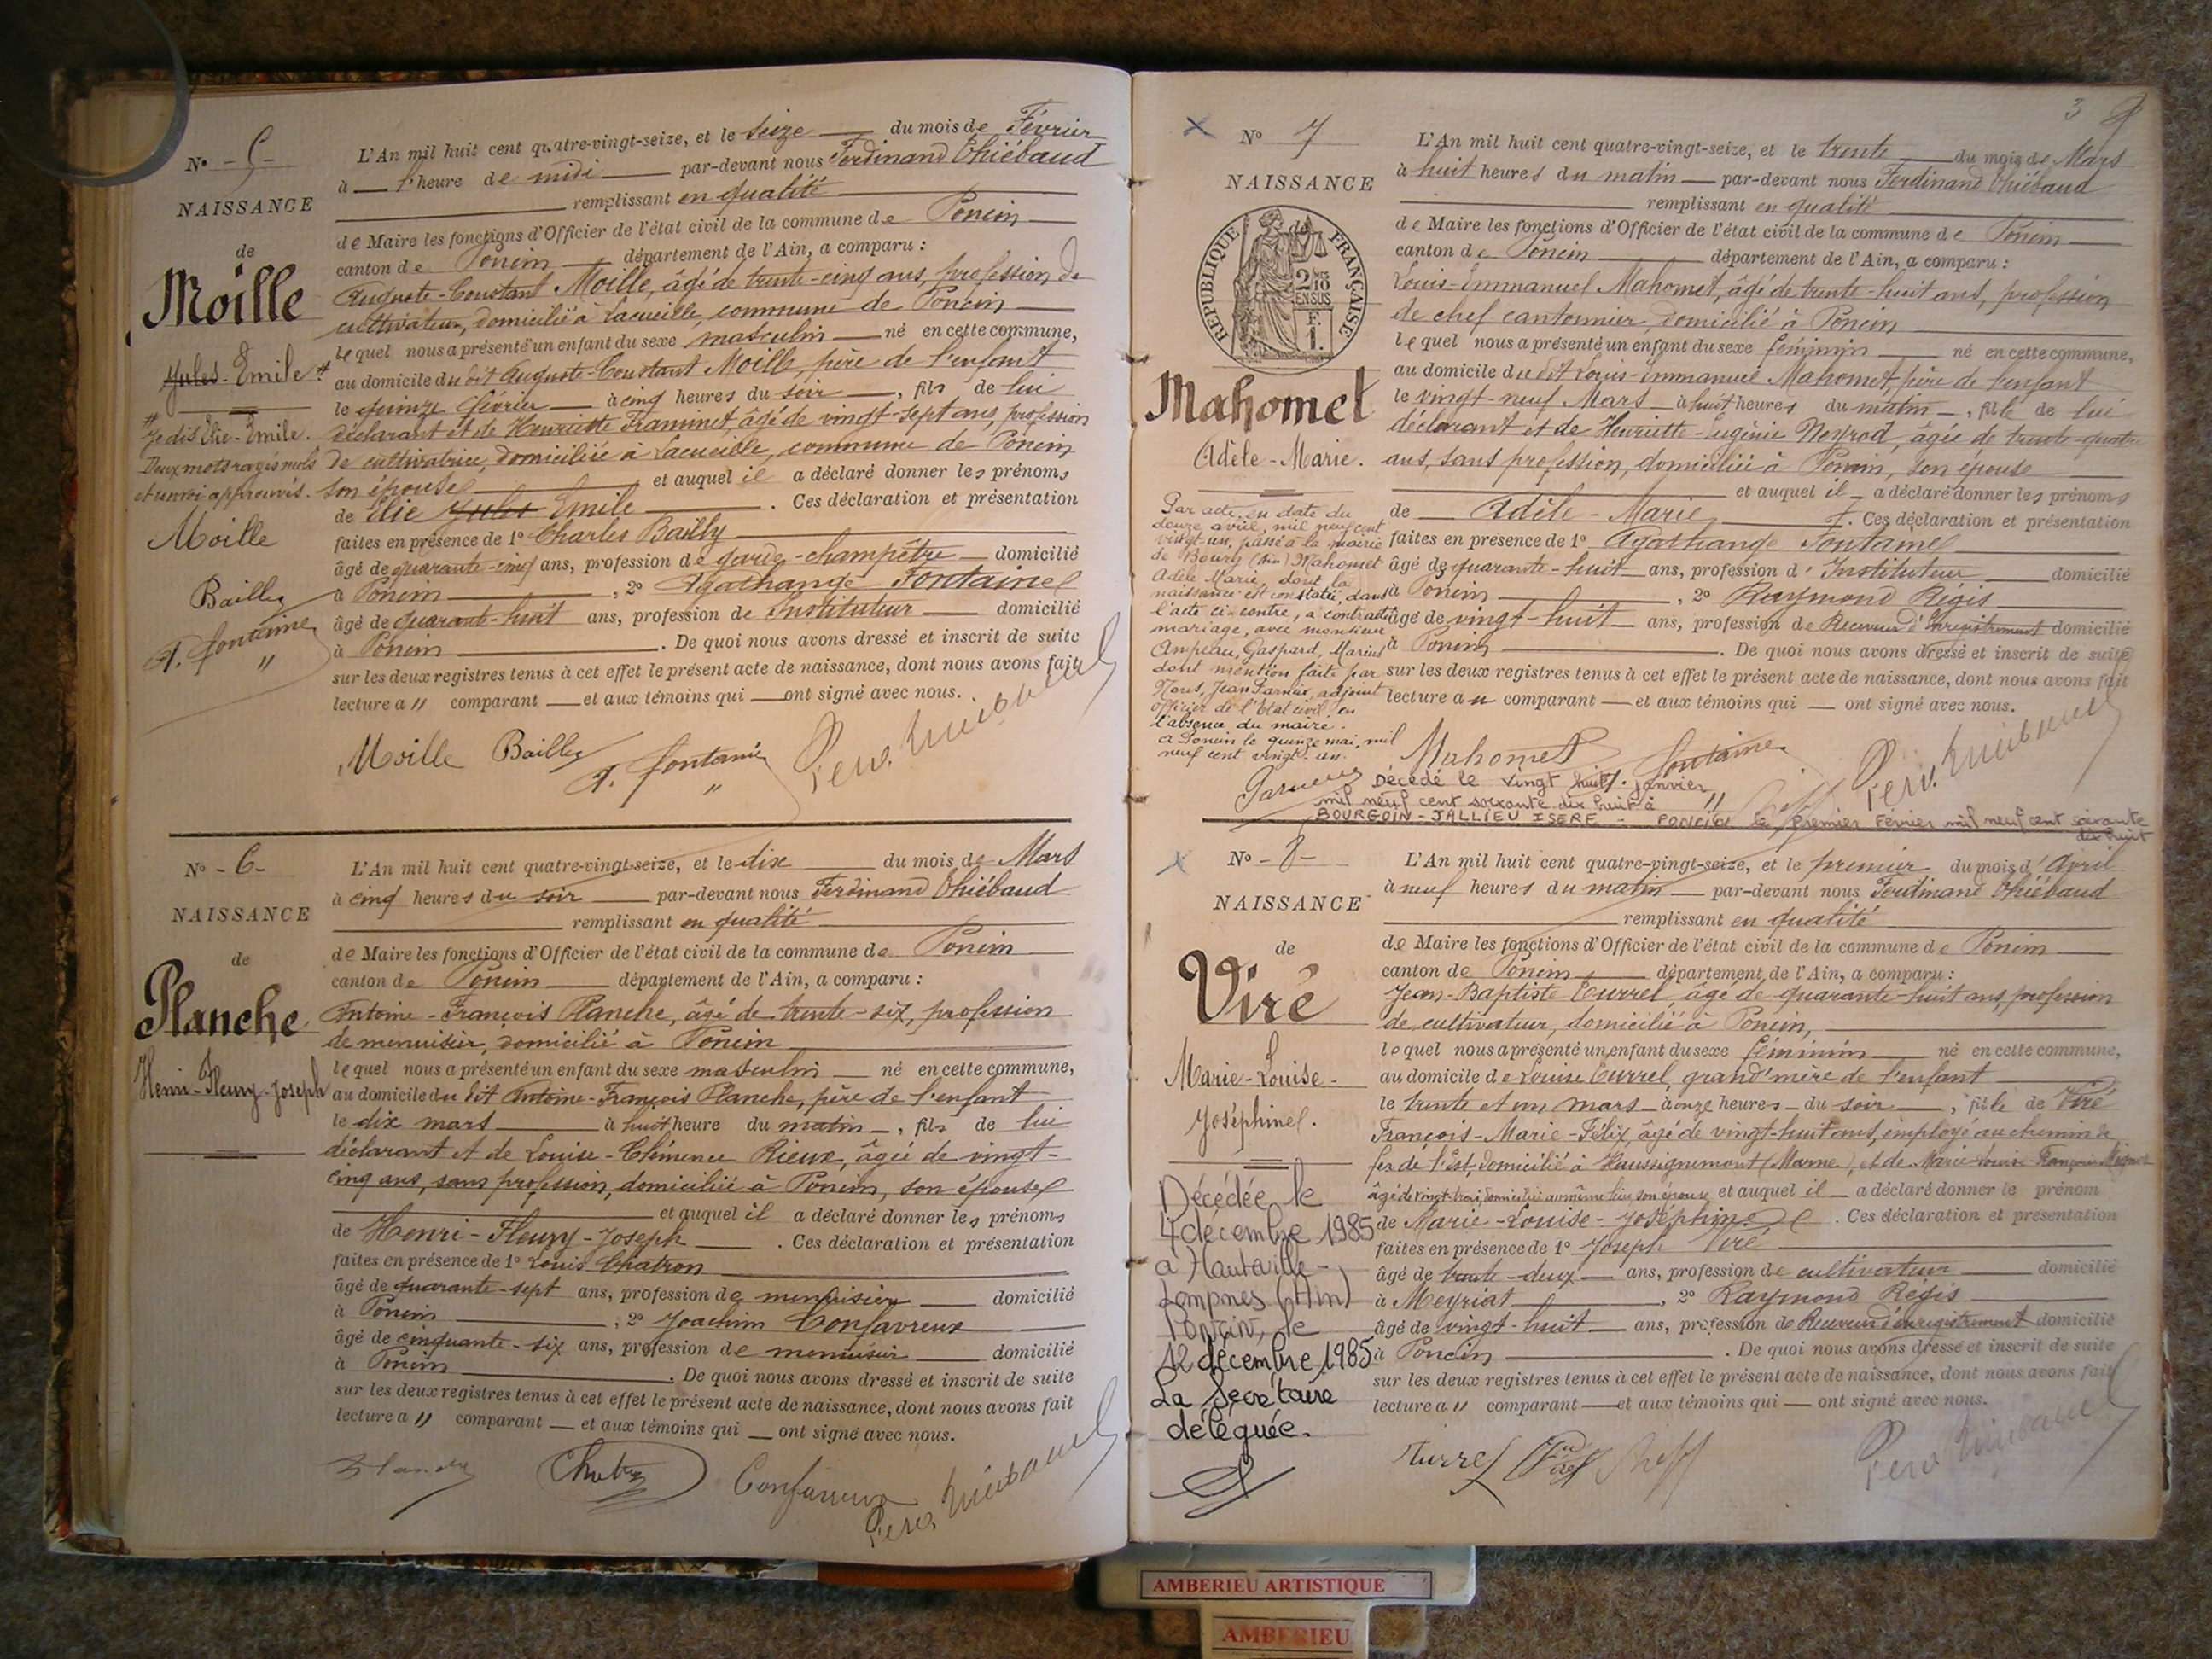 N° - 5 -
NAISSANCE
de
Moille
Jules - Emile #
# Je dis Elie - Emile.
Deux mots rayés nuls
et renvoi approuvés.
Moille
Bailly
A. Fontaine
L'An mil huit cent quatre-vingt-seize, et le seize du mois de Février
à 1 heure de midi par-devant nous Ferdinand Thiébaud
remplissant en qualité
de Maire les fonctions d'Officier de l'état civil de la commune de Poncin
canton de Poncin département de l'Ain, a comparu :
Auguste-Constant Moille, âgé de trente-cinq ans, profession de
cultivateur, domicilié à Lacueille, commune de Poncin
lequel nous a présenté un enfant du sexe masculin né en cette commune,
au domicile du dit Auguste-Constant Moille, père de l'enfant
le quinze février à cinq heures du soir, fils de lui
déclarant et de Henriette Framinet, âgée de vingt-sept ans, profession
de cultivatrice, domiciliée à Lacueille, commune de Poncin
son épouse et auquel il a déclaré donner les prénoms
de Elie Jules Emile. Ces déclaration et présentation
faites en présence de 1° Charles Bailly
âgé de quarante-cinq ans, profession de garde-champêtre domicilié
à Poncin, 2° Agathange Fontaine
âgé de quarante-huit ans, profession de Instituteur domicilié
à Poncin. De quoi nous avons dressé et inscrit de suite
sur les deux registres tenus à cet effet le présent acte de naissance, dont nous avons fait
lecture a u comparant et aux témoins qui ont signé avec nous.
Moille Bailly A. Fontaine Ferd. Thiébaud
N° - 6 -
NAISSANCE
de
Planche
Henri-Fleury-Joseph
L'An mil huit cent quatre-vingt-seize, et le dix du mois de Mars
à cinq heures du soir par-devant nous Ferdinand Thiébaud
remplissant en qualité
de Maire les fonctions d'Officier de l'état civil de la commune de Poncin
canton de Poncin département de l'Ain, a comparu :
Antoine-François Planche, âgé de trente-six, profession
de menuisier, domicilié à Poncin
lequel nous a présenté un enfant du sexe masculin né en cette commune,
au domicile du dit Antoine-François Planche, père de l'enfant
le dix mars à huit heure du matin, fils de lui
déclarant et de Louise-Clémence Rieux, âgée de vingt-
cinq ans, sans profession, domiciliée à Poncin, son épouse
et auquel il a déclaré donner les prénoms
de Henri-Fleury-Joseph. Ces déclaration et présentation
faites en présence de 1° Louis Chatron
âgé de quarante-sept ans, profession de menuisier domicilié
à Poncin, 2° Joachim Confavreux
âgé de cinquante-six ans, profession de menuisier domicilié
à Poncin. De quoi nous avons dressé et inscrit de suite
sur les deux registres tenus à cet effet le présent acte de naissance, dont nous avons fait
lecture a u comparant et aux témoins qui ont signé avec nous.
Planche Chatron Confavreux Ferd. Thiébaud
3
N° 7
NAISSANCE
de
RÉPUBLIQUE FRANÇAISE
2/10 EN SUS
F. 1.
Mahomet
Adèle-Marie.
Par acte, en date du
douze avril, mil neuf cent
vingt un, passé à la mairie
de Bourg (Ain) Mahomet
Adèle Marie, dont la
naissance est constatée, dans
l'acte ci-contre, a contracté
mariage, avec monsieur
Ampeau, Gaspard, Marius
dont mention faite par
Nous, Jean Farneux, adjoint
officier de l'état civil en
l'absence du maire.
A Poncin le quinze mai, mil
neuf cent vingt-un.
L'An mil huit cent quatre-vingt-seize, et le trente du mois de Mars
à huit heures du matin par-devant nous Ferdinand Thiébaud
remplissant en qualité
de Maire les fonctions d'Officier de l'état civil de la commune de Poncin
canton de Poncin département de l'Ain, a comparu :
Louis-Emmanuel Mahomet, âgé de trente-huit ans, profession
de chef cantonnier, domicilié à Poncin
lequel nous a présenté un enfant du sexe féminin né en cette commune,
au domicile du dit Louis-Emmanuel Mahomet, père de l'enfant
le vingt-neuf Mars à huit heures du matin, fille de lui
déclarant et de Henriette-Eugénie Neyrod, âgée de trente-quatre
ans, sans profession, domiciliée à Poncin, son épouse
et auquel il a déclaré donner les prénoms
de Adèle-Marie. Ces déclaration et présentation
faites en présence de 1° Agathange Fontaine
âgé de quarante-huit ans, profession d'Instituteur domicilié
à Poncin, 2° Raymond Régis
âgé de vingt-huit ans, profession de Receveur d'Enregistrement domicilié
à Poncin. De quoi nous avons dressé et inscrit de suite
sur les deux registres tenus à cet effet le présent acte de naissance, dont nous avons fait
lecture a u comparant et aux témoins qui ont signé avec nous.
Mahomet Fontaine Ferd. Thiébaud
Décédé le vingt huit janvier
mil neuf cent soixante dix huit à
BOURGOIN-JALLIEU ISERE - PONCIN le premier Février mil neuf cent soixante
dix huit
N° - 8 -
NAISSANCE
de
Viré
Marie-Louise-
Joséphine.
Décédée le
4 décembre 1985
à Hauteville-
Lompnes (Ain)
Poncin, le
12 décembre 1985
La Secrétaire
déléguée.
L'An mil huit cent quatre-vingt-seize, et le premier du mois d'Avril
à neuf heures du matin par-devant nous Ferdinand Thiébaud
remplissant en qualité
de Maire les fonctions d'Officier de l'état civil de la commune de Poncin
canton de Poncin département de l'Ain, a comparu :
Jean-Baptiste Eurrel, âgé de quarante-huit ans, profession
de cultivateur, domicilié à Poncin,
lequel nous a présenté un enfant du sexe féminin né en cette commune,
au domicile de Louise Currel, grand'mère de l'enfant
le trente et un mars à onze heures du soir, fille de Viré
François-Marie-Félix, âgé de vingt-huit ans, employé au chemin de
fer de l'Est, domicilié à Haussignemont (Marne), et de Marie-Louise-Françoise
âgée de vingt-trois, domiciliée au même lieu, son épouse et auquel il a déclaré donner le prénom
de Marie-Louise-Joséphine. Ces déclaration et présentation
faites en présence de 1° Joseph Viré
âgé de trente-deux ans, profession de cultivateur domicilié
à Meyriat, 2° Raymond Régis
âgé de vingt-huit ans, profession de Receveur d'enregistrement domicilié
à Poncin. De quoi nous avons dressé et inscrit de suite
sur les deux registres tenus à cet effet le présent acte de naissance, dont nous avons fait
lecture a u comparant et aux témoins qui ont signé avec nous.
Ferd. Thiébaud
AMBERIEU ARTISTIQUE
AMBERIEU